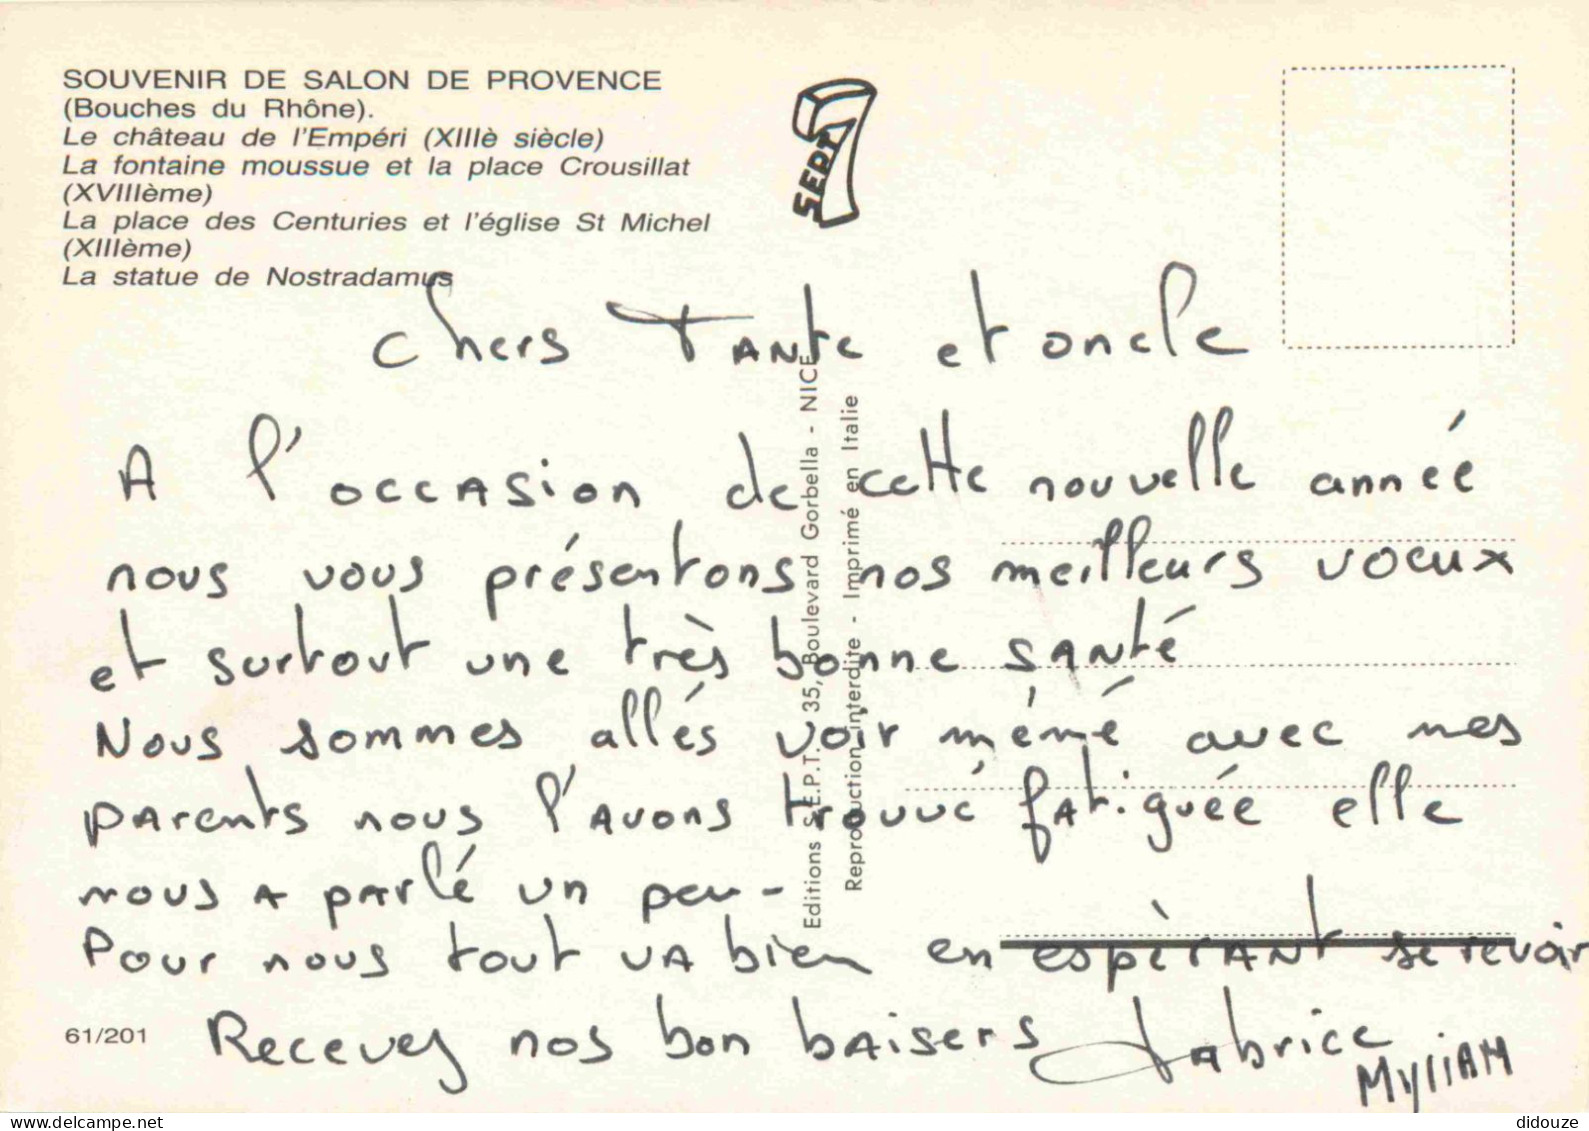 SOUVENIR DE SALON DE PROVENCE
(Bouches du Rhône).
Le château de l'Empéri (XIIIè siècle)
La fontaine moussue et la place Crousillat
(XVIIIème)
La place des Centuries et l'église St Michel
(XIIIème)
La statue de Nostradamus
SEPT 7
Chers Tante et oncle
A l'occasion de cette nouvelle année
nous vous présentons nos meilleurs voeux
et surtout une très bonne santé
Nous sommes allés voir mémé avec mes
parents nous l'avons trouvé fatiguée elle
nous a parlé un peu -
Pour nous tout va bien en espèrant se revoir
Recevez nos bon baisers Fabrice
Myriam
Editions S.E.P.T. 35, Boulevard Gorbella - NICE
Reproduction interdite - Imprimé en Italie
61/201
delcampe.net
didouze